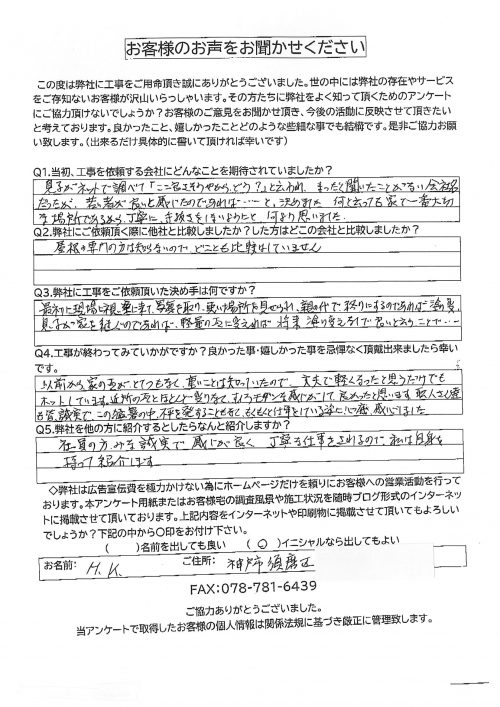 お客様のお声をお聞かせください
この度は弊社に工事をご用命頂き誠にありがとうございました。世の中には弊社の存在やサービス
をご存知ないお客様が沢山いらっしゃいます。その方たちに弊社をよく知って頂くためのアンケート
にご協力頂けないでしょうか？お客様のご意見をお聞かせ頂き、今後の活動に反映させて頂きたい
と考えております。良かったこと、嬉しかったことどのような些細な事でも結構です。是非ご協力お願
い致します。（出来るだけ具体的に書いて頂ければ幸いです）
Q1.当初、工事を依頼する会社にどんなことを期待されていましたか？
息子がネットで調べて「ここ名さそうやから、どう？」と云われ、まったく聞いたことがない会社名
だったが、若者が良いと感じたのであれば・・・・と、決めました 何と云っても家で一番大切
な場所であるから、丁寧に、手抜きをしないようにと 何より思いました。
Q2.弊社にご依頼頂く際に他社と比較しましたか？した方はどこの会社と比較しましたか？
屋根の専門の方は知らないので、どことも比較はしていません
Q3.弊社に工事をご依頼頂いた決め手は何ですか？
最初に現場に車で来て、写真を取り、悪い場所を見せられ、親の代で終りにするのであれば塗り替え、
息子が家を継ぐのであれば、軽量の瓦に変えれば 将来 塗り変えなしで良いと云うことで・・・
Q4.工事が終わってみていかがですか？良かった事・嬉しかった事を忌憚なく頂戴出来ましたら幸い
です。
以前から家の瓦がとても古く、重いことは知っていたので、丈夫で軽くなったと思うだけでも
ホットしています。近所の瓦とほとんど変りなく、むしろモダンな感じがして良かったと思います 職人さん達
も皆、誠実で、この猛暑の中、
Q5.弊社を他の方に紹介するとしたらなんと紹介しますか？
社員の方、みな誠実で 感じが良く 丁寧な仕事をされるので 私は自身を
持って紹介します
◇弊社は広告宣伝費を極力かけない為にホームページだけを頼りにお客様への営業活動を行って
おります。本アンケート用紙またはお客様宅の調査風景や施工状況を随時ブログ形式のインターネッ
トに掲載させて頂いております。上記内容をインターネットや印刷物に掲載させて頂いてもよろしい
でしょうか？下記の中から〇印をお付け下さい。
（ ）名前を出しても良い （ 〇 ）イニシャルなら出してもよい
お名前： H.K. ご住所： 神戸市須磨区
FAX:078-781-6439
ご協力ありがとうございました。
当アンケートで取得したお客様の個人情報は関係法規に基づき厳正に管理致します。